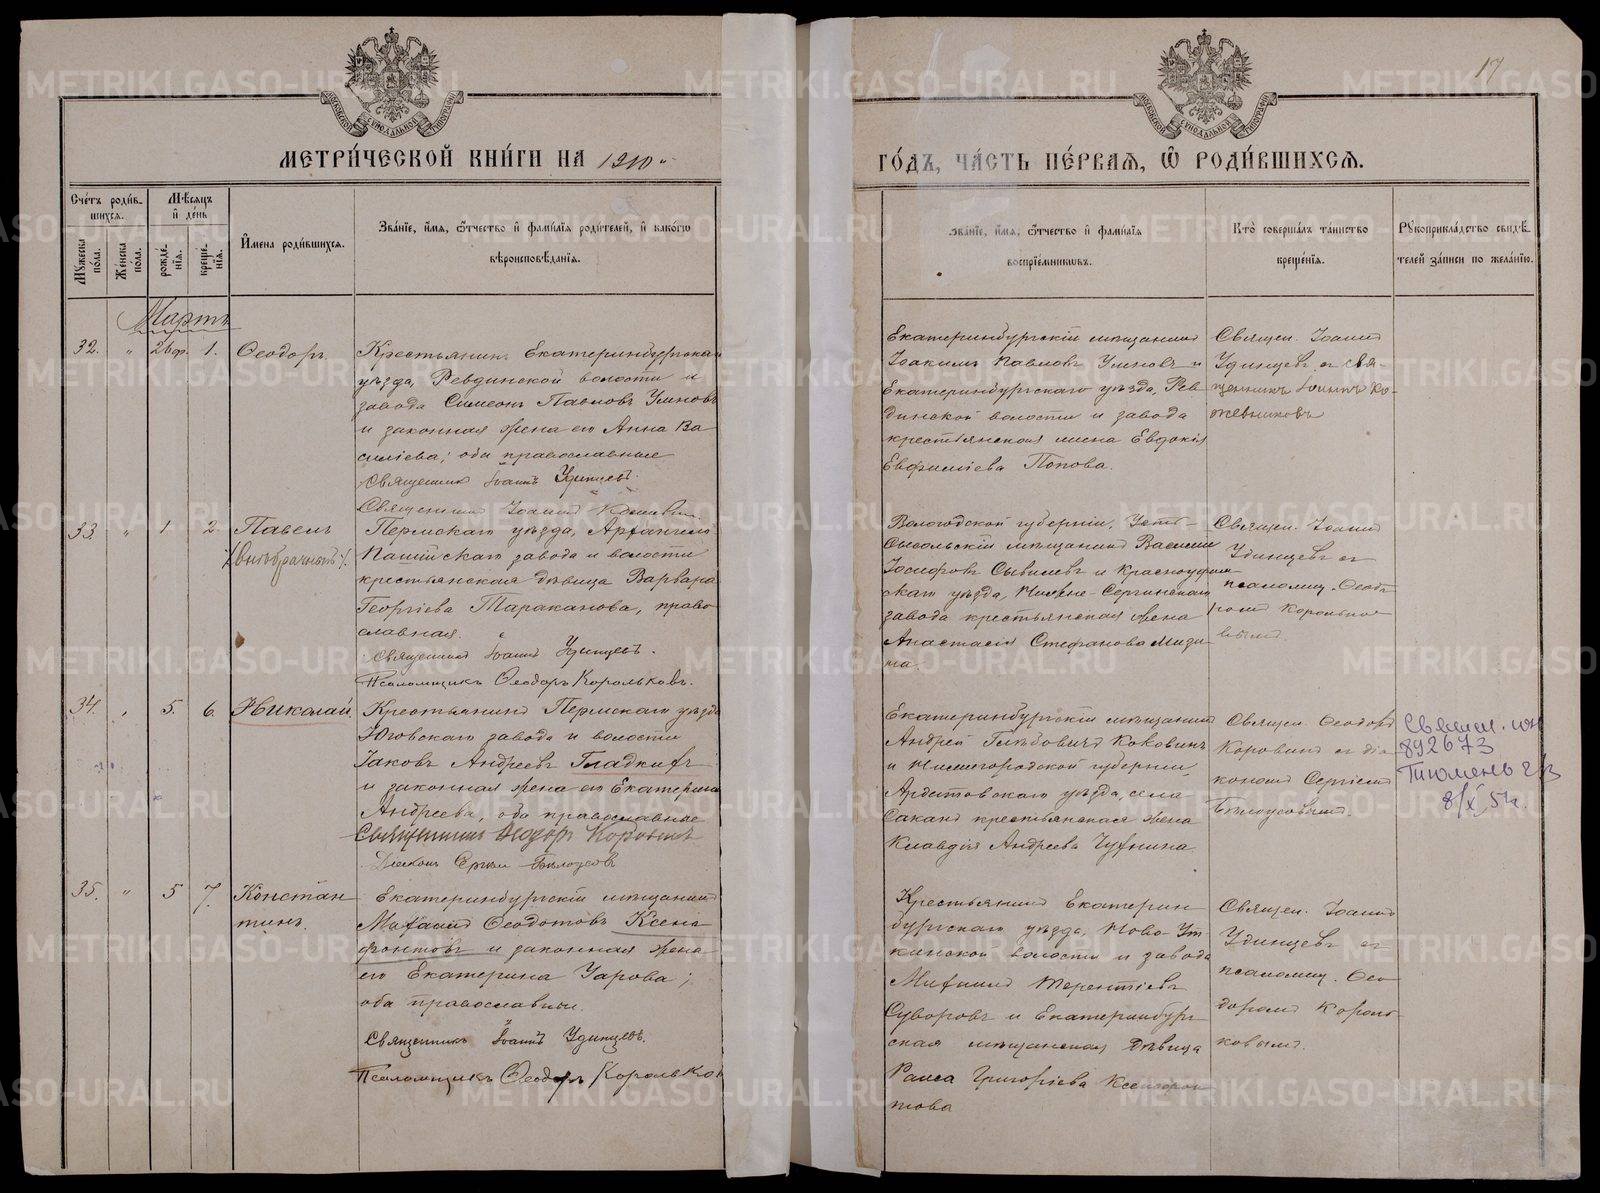 17
МЕТРИ́ЧЕСКОЙ КНИ́ГИ НА 1910
ГО́ДЪ, ЧА́СТЬ ПЕ́РВАЯ, Ѿ РОДИ́ВШИХСЯ.
Сче́тъ роди́в-
шихся.
Му́жеска по́ла.
Же́нска по́ла.
Мѣ́сяцъ и де́нь
рожде́-
нія.
креще́-
нія.
И́мена роди́вшихся.
Зва́ніе, и́мя, ѻ́тчество и фами́лія роди́телей, и како́гѡ
вѣроисповѣ́данія.
Зва́ніе, и́мя, ѻ́тчество и фами́лія
воспріе́мниковъ.
Кто̀ соверша́лъ та́инство
креще́нія.
Рꙋкоприкла́дство свидѣ́-
телей за́писи по жела́нію.
Мартъ
32. " 26 ф. 1. Ѳеодоръ
Крестьянинъ Екатеринбургскаго
уѣзда, Ревдинской волости и
завода Симеонъ Павловъ Умновъ
и законная жена его Анна Ва
силіева; оба православные
Священникъ Іоаннъ Удинцевъ.
Священникъ Іоаннъ
Екатеринбургскій мѣщанинъ
Іоакимъ Павловъ Умновъ и
Екатеринбургскаго уѣзда, Рев-
динской волости и завода
крестьянская жена Евдокія
Евфиміева Попова.
Священ. Іоаннъ
Удинцевъ съ свя-
щенникъ Іоаннъ Ко-
жевниковъ
33. " 1. 2. Павелъ
(Внѣбрачный).
Пермскаго уѣзда, Архангело-
Пашійскаго завода и волости
крестьянская дѣвица Варвара
Георгіева Тараканова, право
славная.
Священникъ Іоаннъ Удинцевъ.
Псаломщикъ Ѳеодоръ Корольковъ.
Вологодской губерніи, Усть-
Сысольскій мѣщанинъ Василій
Іосифовъ Сывилевъ и Красноуфим
скаго уѣзда, Нижне-Сергинскаго
завода крестьянская жена
Анастасія Стефанова
Священ. Іоаннъ
Удинцевъ съ
псаломщ. Ѳеодо
ромъ Королько
вымъ.
34. " 5. 6. Николай
Крестьянинъ Пермскаго уѣзда
Юговскаго завода и волости
Іаковъ Андреевъ Гладкихъ
и законная жена его Екатерина
Андреева, оба православные
Священникъ Ѳеодоръ Коровинъ
Діаконъ Сергій Бѣлоусовъ
Екатеринбургскій мѣщанинъ
Андрей Глѣбовичъ Коковинъ
и Нижегородской губерніи,
Ардатовскаго уѣзда, села
Саканъ крестьянская жена
Клавдія Андреева Чухнина
Священ. Ѳеодоръ
Коровинъ съ діа
кономъ Сергіемъ
Бѣлоусовымъ.
892673
Тюмень
8/X 51г.
35. " 5 7. Констан
тинъ.
Екатеринбургскій мѣщанинъ
Михаилъ Ѳеодотовъ Ксено
фонтовъ и законная жена
его Екатерина Уарова;
оба православные.
Священникъ Іоаннъ Удинцевъ.
Псаломщикъ Ѳеодоръ Корольков
Крестьянинъ Екатерин
бургскаго уѣзда, Ново-Ут
кинской волости и завода
Михаилъ Терентіевъ
Суворовъ и Екатеринбург
ская мѣщанская дѣвица
Раиса Григоріева Ксенофон
това
Священ. Іоаннъ
Удинцевъ съ
псаломщ. Ѳео
доромъ Король
ковымъ.
METRIKI.GASO-URAL.RU